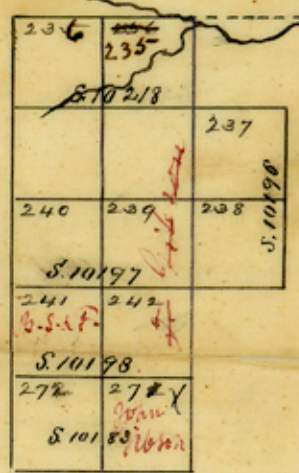 236 235
S. 10218
237
S. 10196
240 239 238
S. 10197
241 242
B. S. & F.
S. 10198
272 271
S. 10183